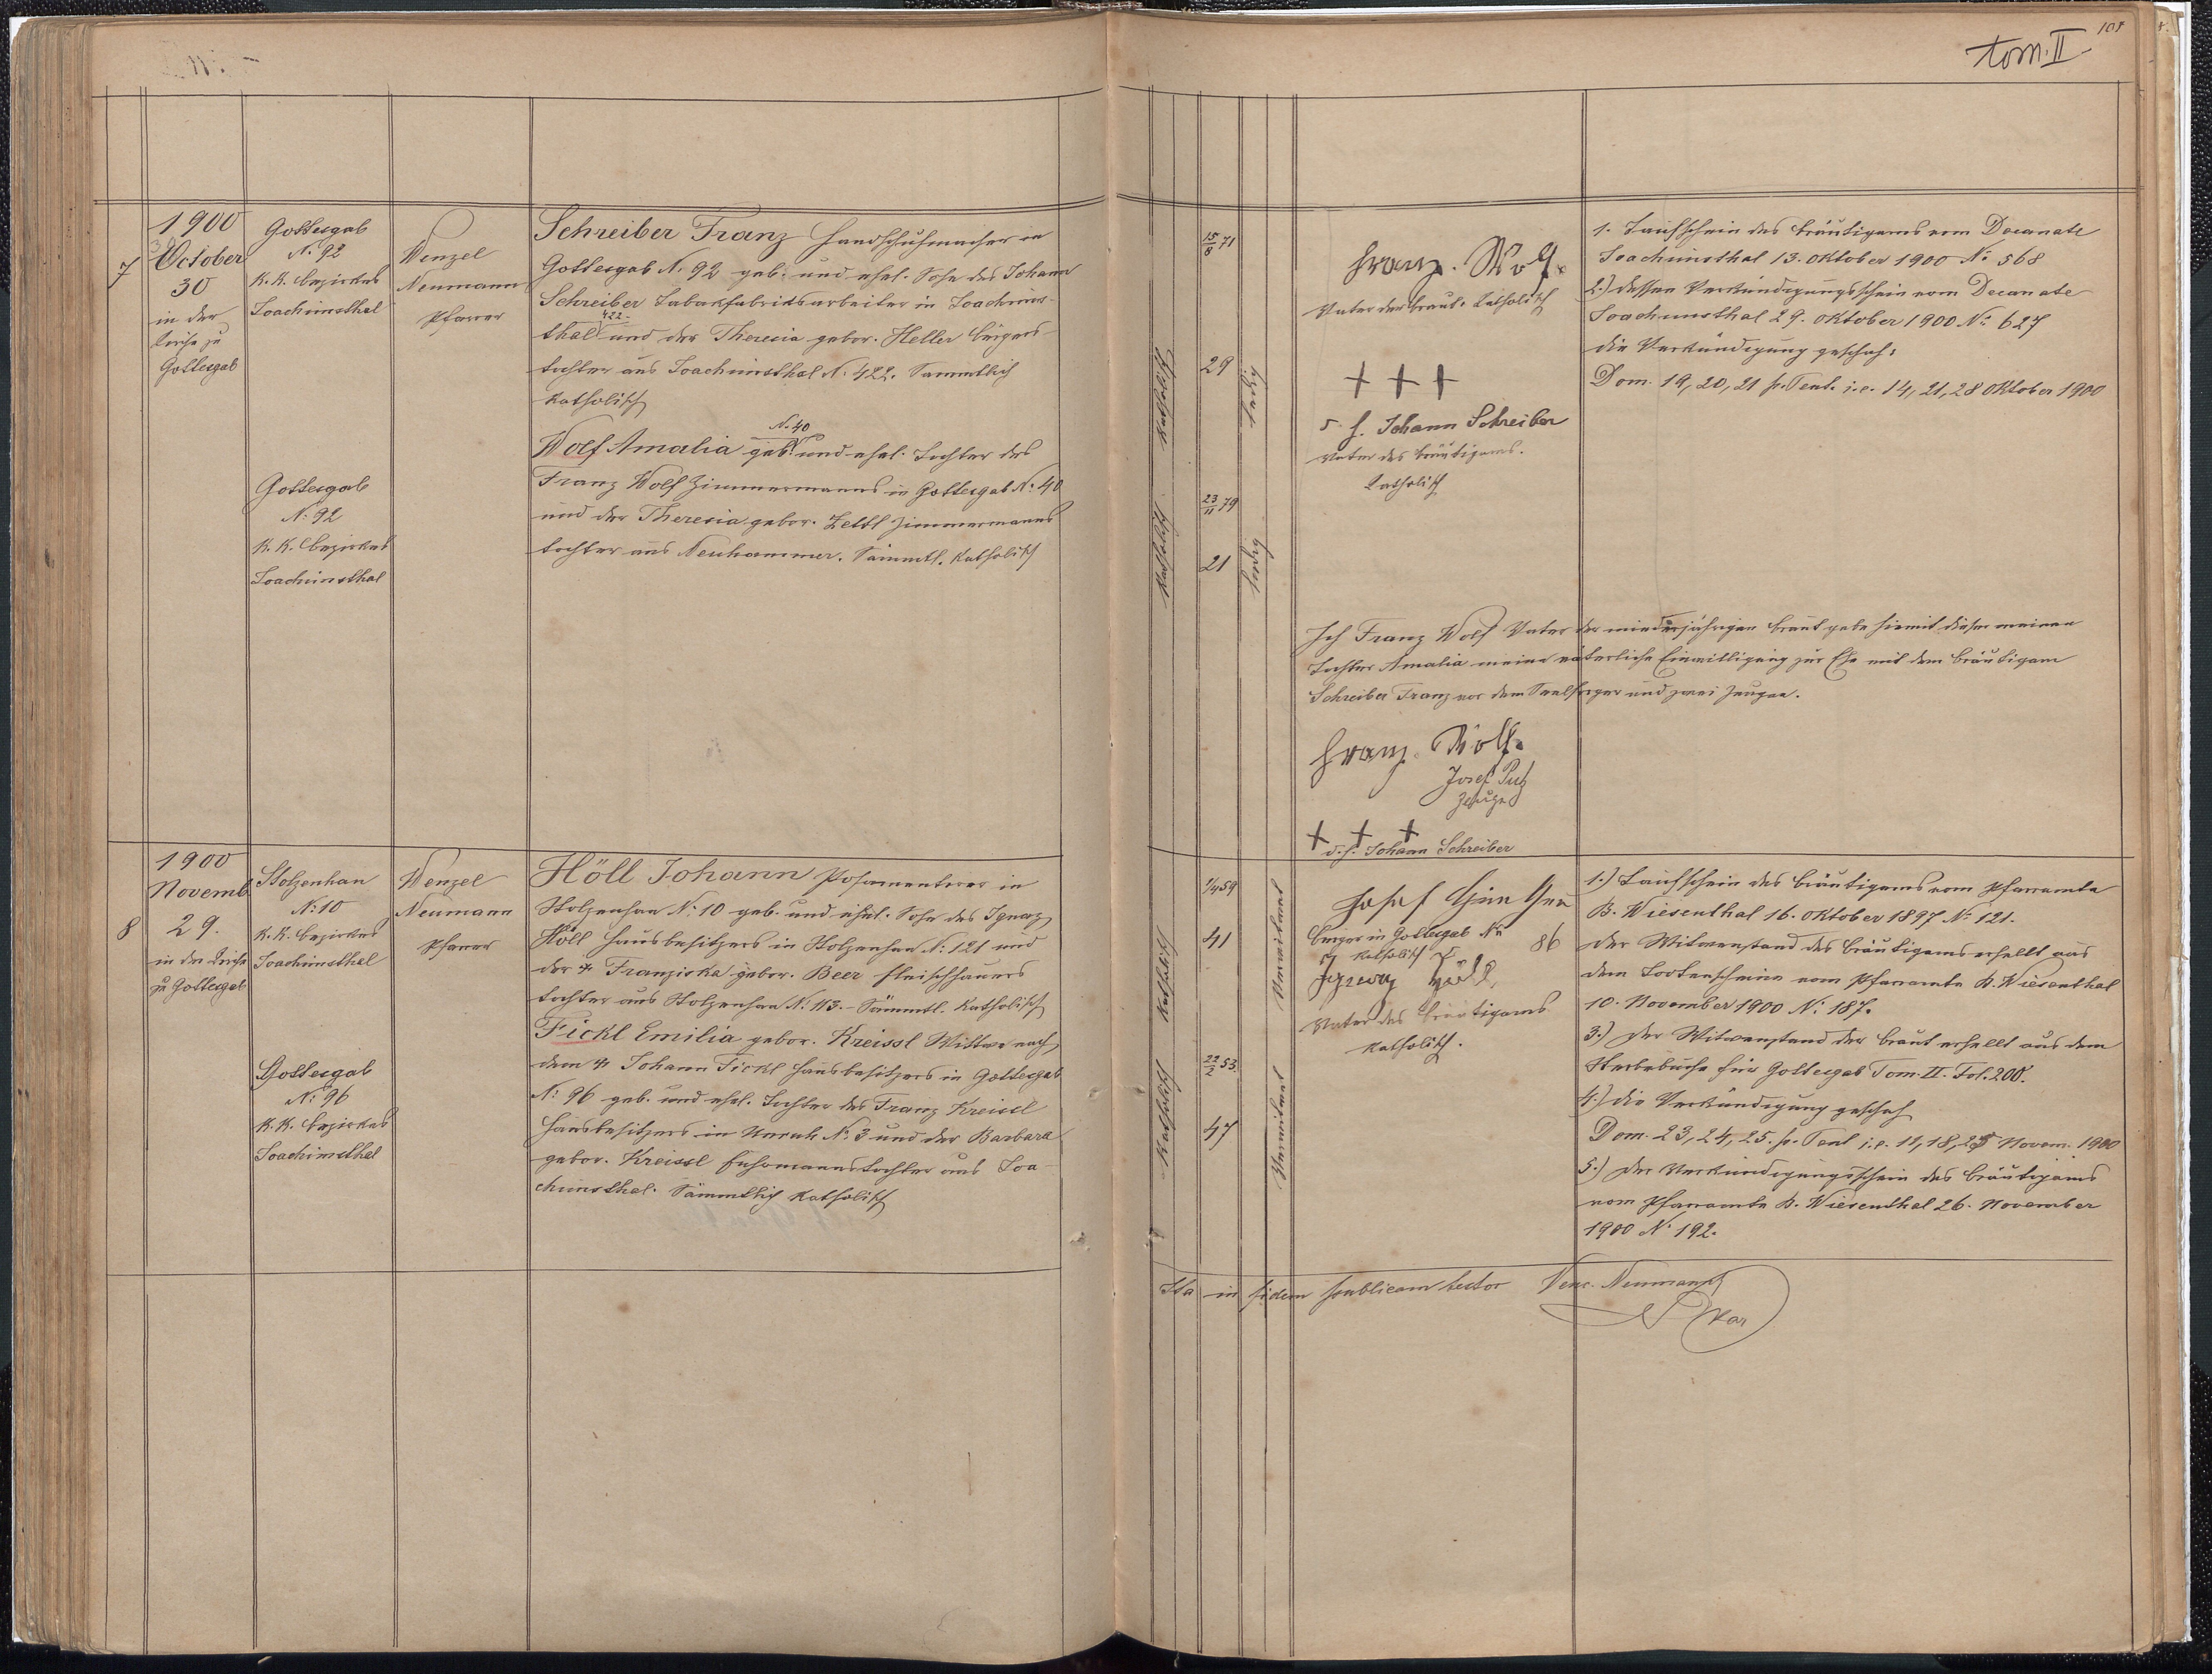 101
tom. II
7
1900
October
30
in der
Kirche zu
Gottesgab
Gottesgab
N. 92
k. k. Bezirkes
Joachimsthal
Wenzel
Neumann
Pfarrer
Schreiber Franz Handschuhmacher in
Gottesgab N. 92 geb. und ehel. Sohn des Johann
Schreiber Tabakfabriksarbeiter in Joachims-
422
thal und der Theresia gebor. Heller Bürgers-
tochter aus Joachimsthal N. 422. Sammtlich
katholisch
N. 40
Wolf Amalia geb. und ehel. Tochter des
Franz Wolf Zimmermanns in Gottesgab N. 40
und der Theresia gebor. Zettl Zimmermanns
tochter aus Neuhammer. Sämmtl. katholisch
Gottesgab
N. 92
k. k. Bezirkes
Joachimsthal
katholisch
15/8 71
29
ledig
katholisch
23/11 79
21
ledig
Franz. Wolf.
Vater der Braut. katholisch
+ + +
Johann Schreiber
Vater des Bräutigams.
katholisch
1. Taufschein des Bräutigams vom Decanate
Joachimsthal 13. Oktober 1900 N. 568
2.) dessen Verkündigungsschein vom Decanate
Joachimsthal 29. Oktober 1900 N. 627
die Verkündigung geschah:
Dom. 19, 20, 21 p. Pent. i. e. 14, 21, 28 Oktober 1900
Ich Franz Wolf Vater der minderjährigen Braut gebe hiemit dieser meiner
Tochter Amalia meine väterliche Einwilligung zur Ehe mit dem Bräutigam
Schreiber Franz vor dem Seelsorger und zwei Zeugen.
Franz. Wolf.
Josef
Zeuge
+ + +
Johann Schreiber
8
1900
Novemb.
29.
in der Kirche
zu Gottesgab
Stolzenhan
N. 10
k. k. Bezirkes
Joachimsthal
Wenzel
Neumann
Pfarrer
Höll Johann Posamentirer in
Stolzenhan N. 10 geb. und ehel. Sohn des Ignaz
Höll Hausbesitzers in Stolzenhan N. 121 und
der + Franziska gebor. Beer Fleischhauers
tochter aus Stolzenhan N. 113. - Sämmtl. katholisch
Fickl Emilia gebor. Kreissl Witwe nach
dem + Johann Fickl Hausbesitzers in Gottesgab
N. 96 geb. und ehel. Tochter des Franz Kreissl
Hausbesitzers in Unruh N. 3 und der Barbara
gebor. Kreissl Fuhrmannstochter aus Joa-
chimsthal. Sämmtlich katholisch
Gottesgab
N. 96
k. k. Bezirkes
Joachimsthal
katholisch
1/4 59
41
Verwitwet
katholisch
22/2 53.
47
Verwitwet
Josef Günther
Bürger in Gottesgab No 86
katholisch
Ignaz Höll
Vater des Bräutigams
katholisch.
1.) Taufschein des Bräutigams vom Pfarramte
B. Wiesenthal 16. Oktober 1897 N. 121.
der Witwenstand des Bräutigams erhellt aus
dem Todtenscheine vom Pfarramte B. Wiesenthal
10. November 1900 N. 187.
3.) der Witwenstand der Braut erhellt aus dem
Sterbebuche für Gottesgab Tom. II. Fol. 200.
4.) die Verkündigung geschah
Dom. 23, 24, 25. p. Pent i. e. 11, 18, 25 Novem. 1900
5.) der Verkündigungsschein des Bräutigams
vom Pfarramte B. Wiesenthal 26. November
1900 N. 192.
Ita in fidem publicam testor Venc. Neumann